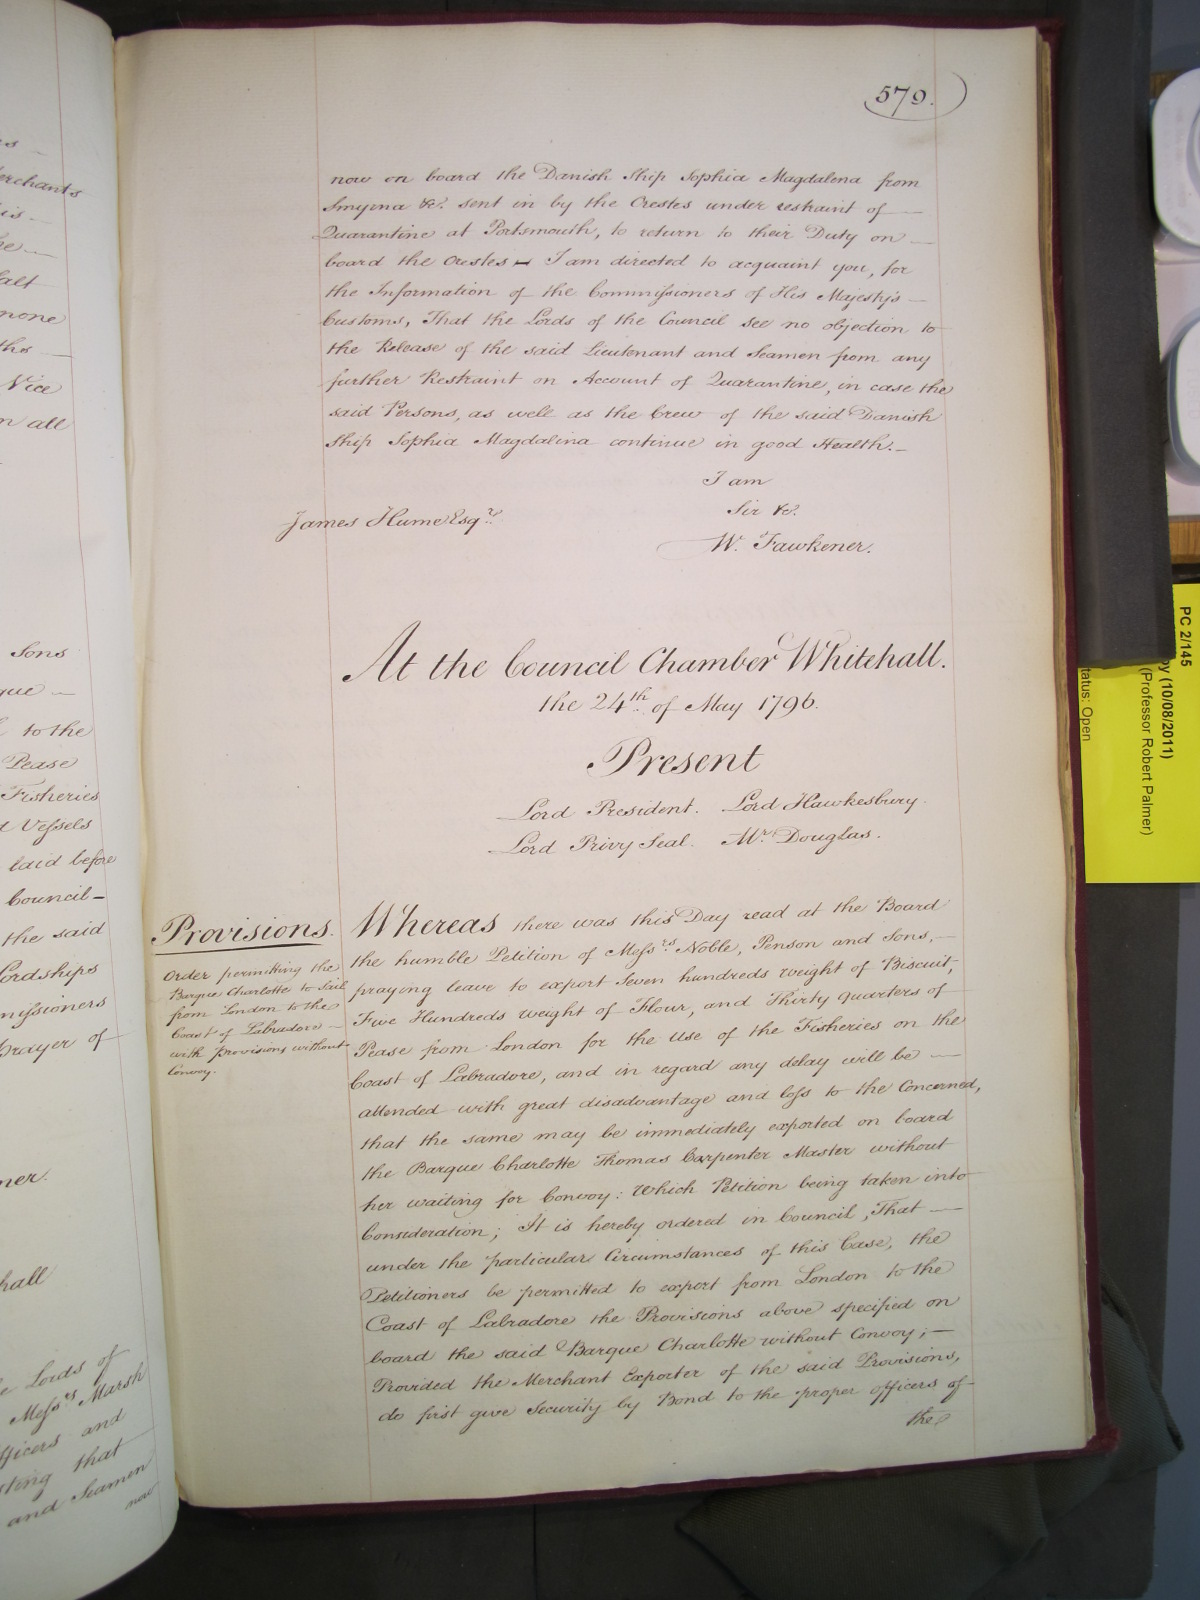 579.
now on board the Danish Ship Sophia Magdalena from
Smyrna &c. sent in by the Orestes under restraint of
Quarantine at Portsmouth, to return to their Duty on
board the Orestes – I am directed to acquaint you, for
the Information of the Commissioners of His Majesty's
Customs, That the Lords of the Council see no objection to
the Release of the said Lieutenant and Seamen from any
further Restraint on Account of Quarantine, in case the
said Persons, as well as the Crew of the said Danish
Ship Sophia Magdalina continue in good Health.–
I am
Sir &c.
James Hume Esqre.
W. Fawkener.
At the Council Chamber Whitehall.
the 24th. of May 1796.
Present
Lord President. Lord Hawkesbury.
Lord Privy Seal. Mr. Douglas.
Provisions.
Order permitting the
Barque Charlotte to Sail
from London to the
Coast of Labradore –
with provisions without
Convoy.
Whereas there was this Day read at the Board
the humble Petition of Messrs. Noble, Penson and Sons,–
praying leave to export Seven hundreds weight of Biscuit,
Five Hundreds weight of Flour, and Thirty quarters of
Pease from London for the Use of the Fisheries on the
Coast of Labradore, and in regard any delay will be —
attended with great disadvantage and loss to the Concerned,
that the same may be immediately exported on board
the Barque Charlotte Thomas Carpenter Master without
her waiting for Convoy: Which Petition being taken into
Consideration; It is hereby ordered in Council, That —
under the particular Circumstances of this Case, the
Petitioners be permitted to export from London to the
Coast of Labradore the Provisions above specified on
board the said Barque Charlotte without Convoy; –
Provided the Merchant Exporter of the said Provisions,
do first give Security by Bond to the proper officers of
the
erchants
none
Vice
all
Sons
to the
Pease
Fisheries
Vessels
laid before
Council –
the said
Lordships
missioners
Prayer of
hall
Lords of
Messrs Marsh
fficers and
sting that
and Seamen
now
PC 2/145
py (10/08/2011)
(Professor Robert Palmer)
tatus: Open